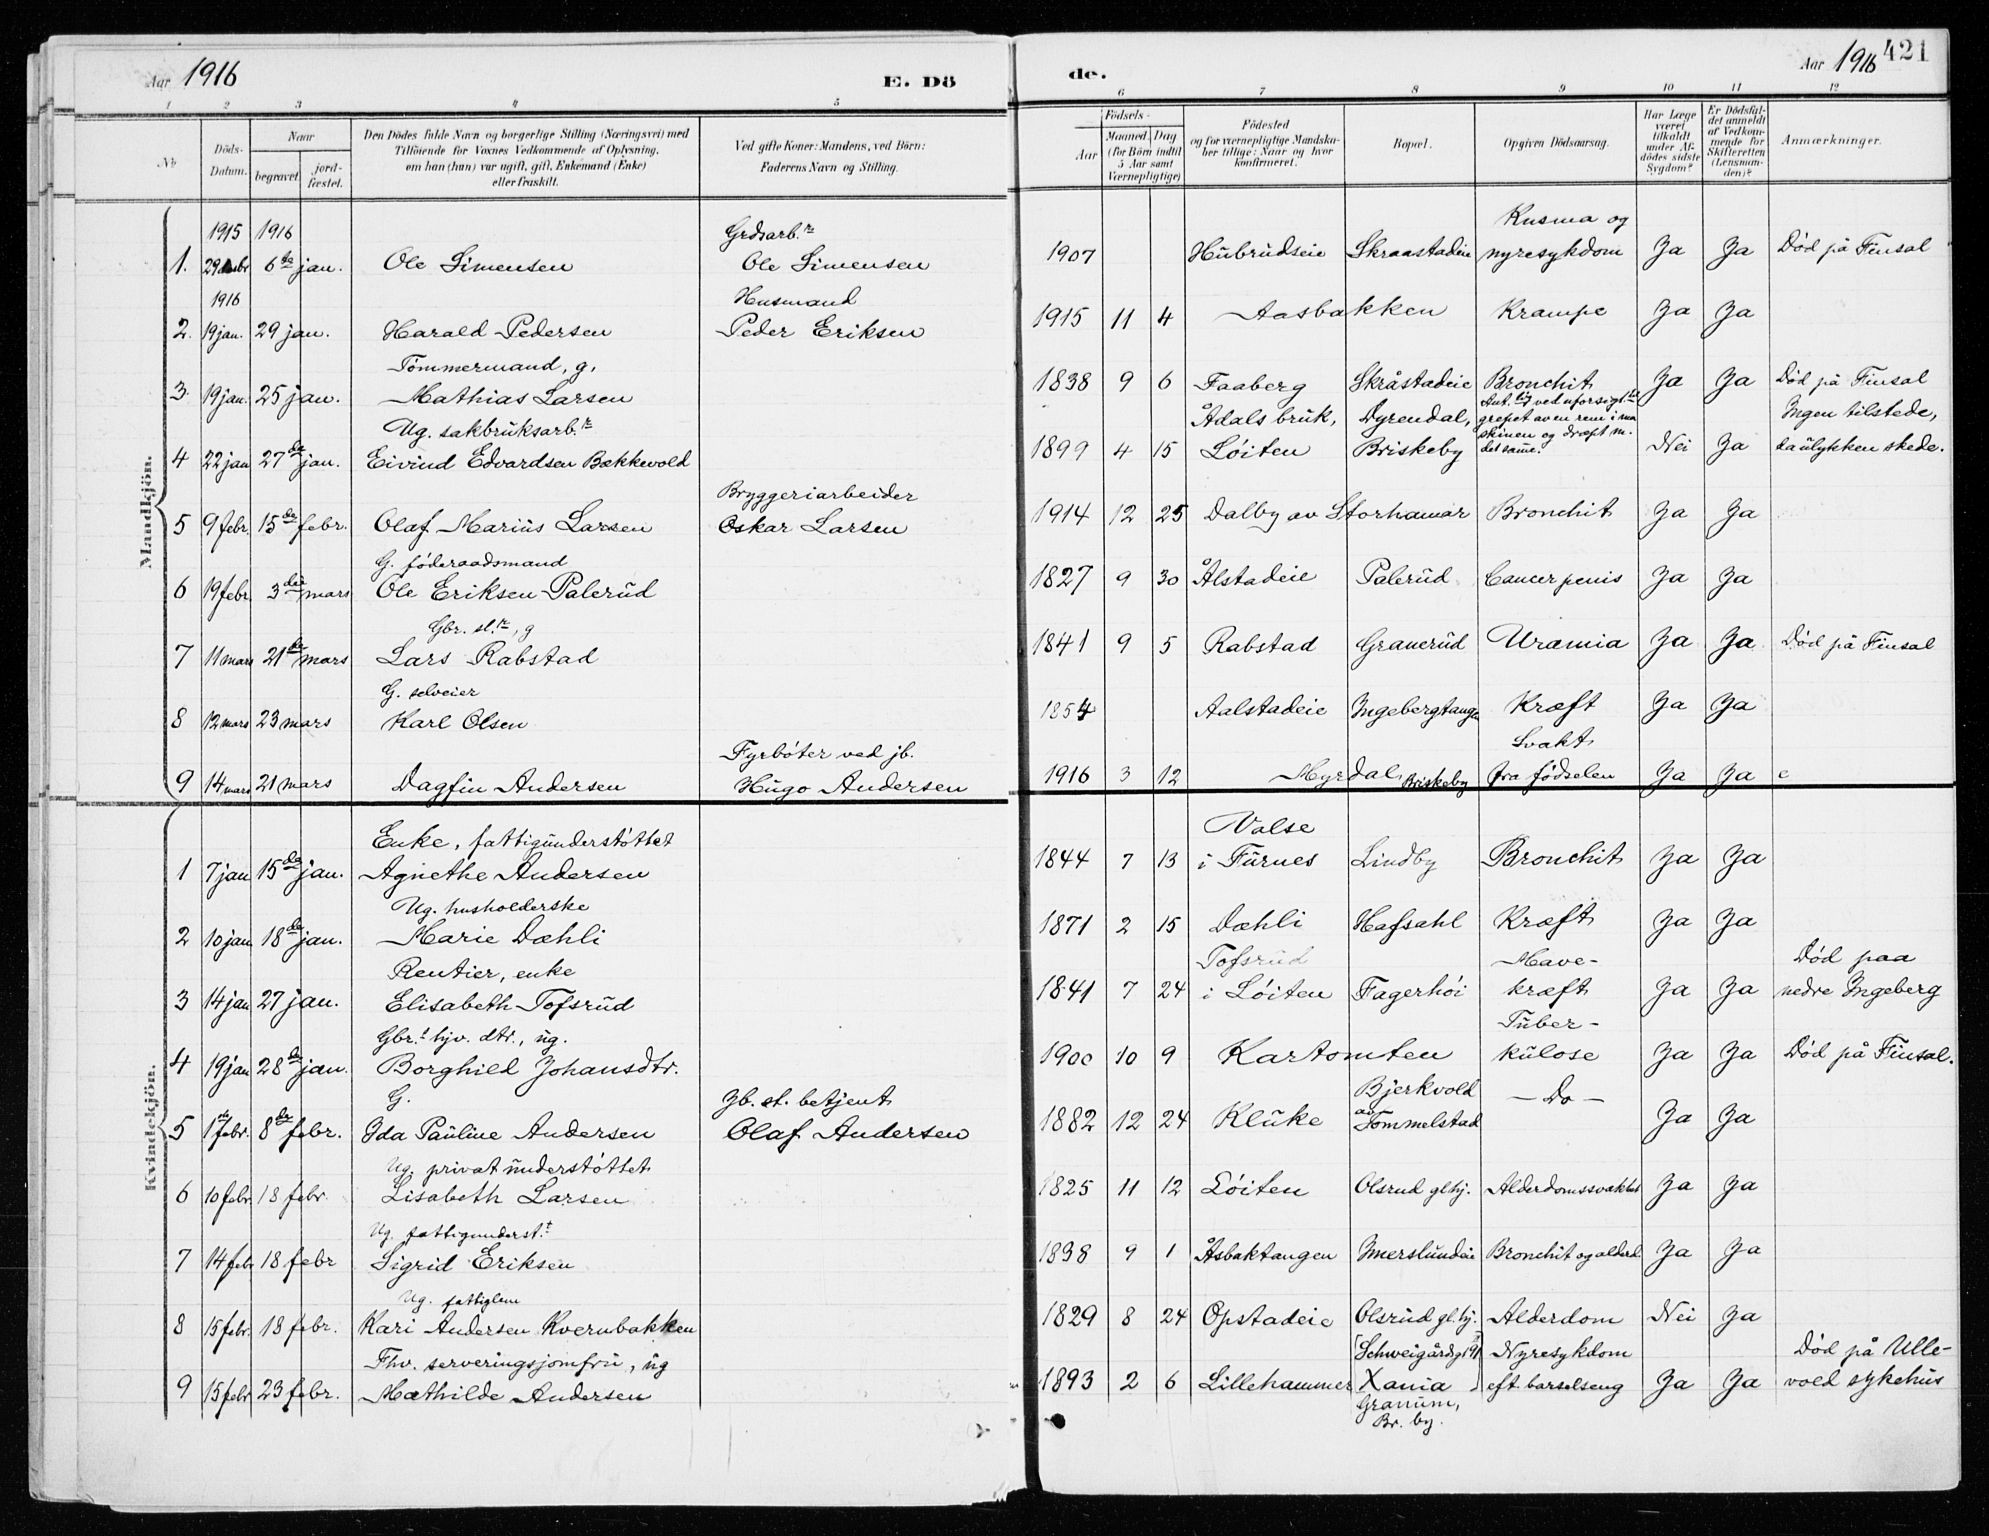 Aar 1916
E. Dö
de.
Aar 1916
421
1 2 3 4 5 6 7 8 9 10 11 12
Nr
Döds-
Datum.
Naar
begravet.
jord-
fæstet.
Den Dödes fulde Navn og borgerlige Stilling (Næringsvei) med
Tilföiende for Voxnes Vedkommende af Oplysning,
om han (hun) var ugift, gift, Enkemand (Enke)
eller fraskilt.
Ved gifte Koner: Mandens, ved Börn:
Faderens Navn og Stilling.
Födsels-
Aar
Maaned
Dag
(for Börn indtil
5 Aar samt
Værnepligtige)
Födested
og for værnepligtige Mandska-
ber tillige: Naar og hvor
konfirmeret.
Bopæl.
Opgiven Dödsaarsag.
Har Læge
været
tilkaldt
under Af-
dödes sidste
Sygdom?
Er Dödsfal-
det anmeldt
af Vedkom-
mende for
Skifteretten
(Lensman-
den)?
Anmærkninger.
Mandkjön.
1915 1916 Grdsarb.r Kusma og
1. 29 desbr 6te jan. Ole Simensen Ole Simensen 1907 Hübrüdseie Skraastadeie nyresykdom Ja Ja Död på Finsal
1916 Husmand
2. 19 jan. 29 jan. Harald Pedersen Peder Eriksen 1915 11 4 Aasbakken Krampe Ja Ja
Tömmermand, g.
3. 19 jan. 25 jan. Mathias Larsen 1838 9 6 Faaberg Skråstadeie Bronchit Ja Ja Död på Finsal
Ug. sakbrüksarb.r Ådals brük, Dyrendal, Ant.lig ved uforsigt.het grepet av en rem i ma Ingen tilstede,
4 22 jan 27de jan. Eivind Edvardsen Bækkevold 1899 4 15 Löiten Briskeby skinen og dræpt m. det samme. Nei Ja da ülykken skede.
Bryggeriarbeider
5 9 febr. 15de febr. Olaf Mariüs Larsen Oskar Larsen 1914 12 25 Dalby av Storhamar Bronchit Ja Ja
G. föderaadsmand
6 19 febr. 3die mars Ole Eriksen Palerüd 1827 9 30 Ålstadeie Palerüd Cancer penis Ja Ja
Gbr. sl.r, g
7 11 mars 21de mars Lars Rabstad 1841 9 5 Rabstad Granerüd Uræmia Ja Ja Död på Finsal
G. selveier
8 12 mars 23 mars Karl Olsen 1854 Aalstadeie Ingebergtangen Kræft Ja Ja
Fyrböter ved jb. Svakt
9 14 mars 21 mars Dagfin Andersen Hügo Andersen 1916 3 12 Myrdal, Briskeby fra födselen Ja Ja
Kvindekjön.
Enke, fattigünderstöttet Valse
1 7 jan 15de jan. Agnethe Andersen 1844 7 13 i Fürnes Lindby Bronchit Ja Ja
Ug. husholderske
2 10 jan 18de jan. Marie Dæhli 1871 2 15 Dæhli Hafsahl Kræft Ja Ja
Rentier, enke Tofsrüd Mave- Död paa
3 14 jan 27 jan. Elisabeth Tofsrüd 1841 7 24 i Löiten Fagerhöi kræft Ja Ja nedre Ingeberg
Gbr.! hjv. dtr., üg. Tüber-
4 19 jan 28de jan. Borghild Johansdtr. 1900 10 9 Kartomten külose Ja Ja Död på Finsal.
G. Jb. st. betjent Bjerkvold
5 1ste febr. 8de febr. Ida Paüline Andersen Olaf Andersen 1882 12 24 Klüke av Tommelstad — Do — Ja Ja
Ug. privat ünderstöttet
6 10 febr 18 febr. Lisabeth Larsen 1825 11 12 Löiten Olsrud glhj. Alderdomssvakhet Ja Ja
Ug. fattigunderst.t
7 14 feb. 18 febr Sigrid Eriksen 1838 9 1 Åsbaktangen Imerslundeie Bronchit og alderd. Ja Ja
Ug. fattiglem
8 15 febr. 18 febr. Kari Andersen Kvernbakken 1829 8 24 Opstadeie Olsrüd gl.hj. Alderdom Nei Ja
Fhv. serveringsjomfrü, üg (Schweigårdg. 91 Nyresykdom Död på Ulle-
9 15 febr 23 febr. Mathilde Andersen 1893 2 6 Lillehammer Xania) eft. barselseng Ja Ja vold sykehüs
Granüm,
Br. by.